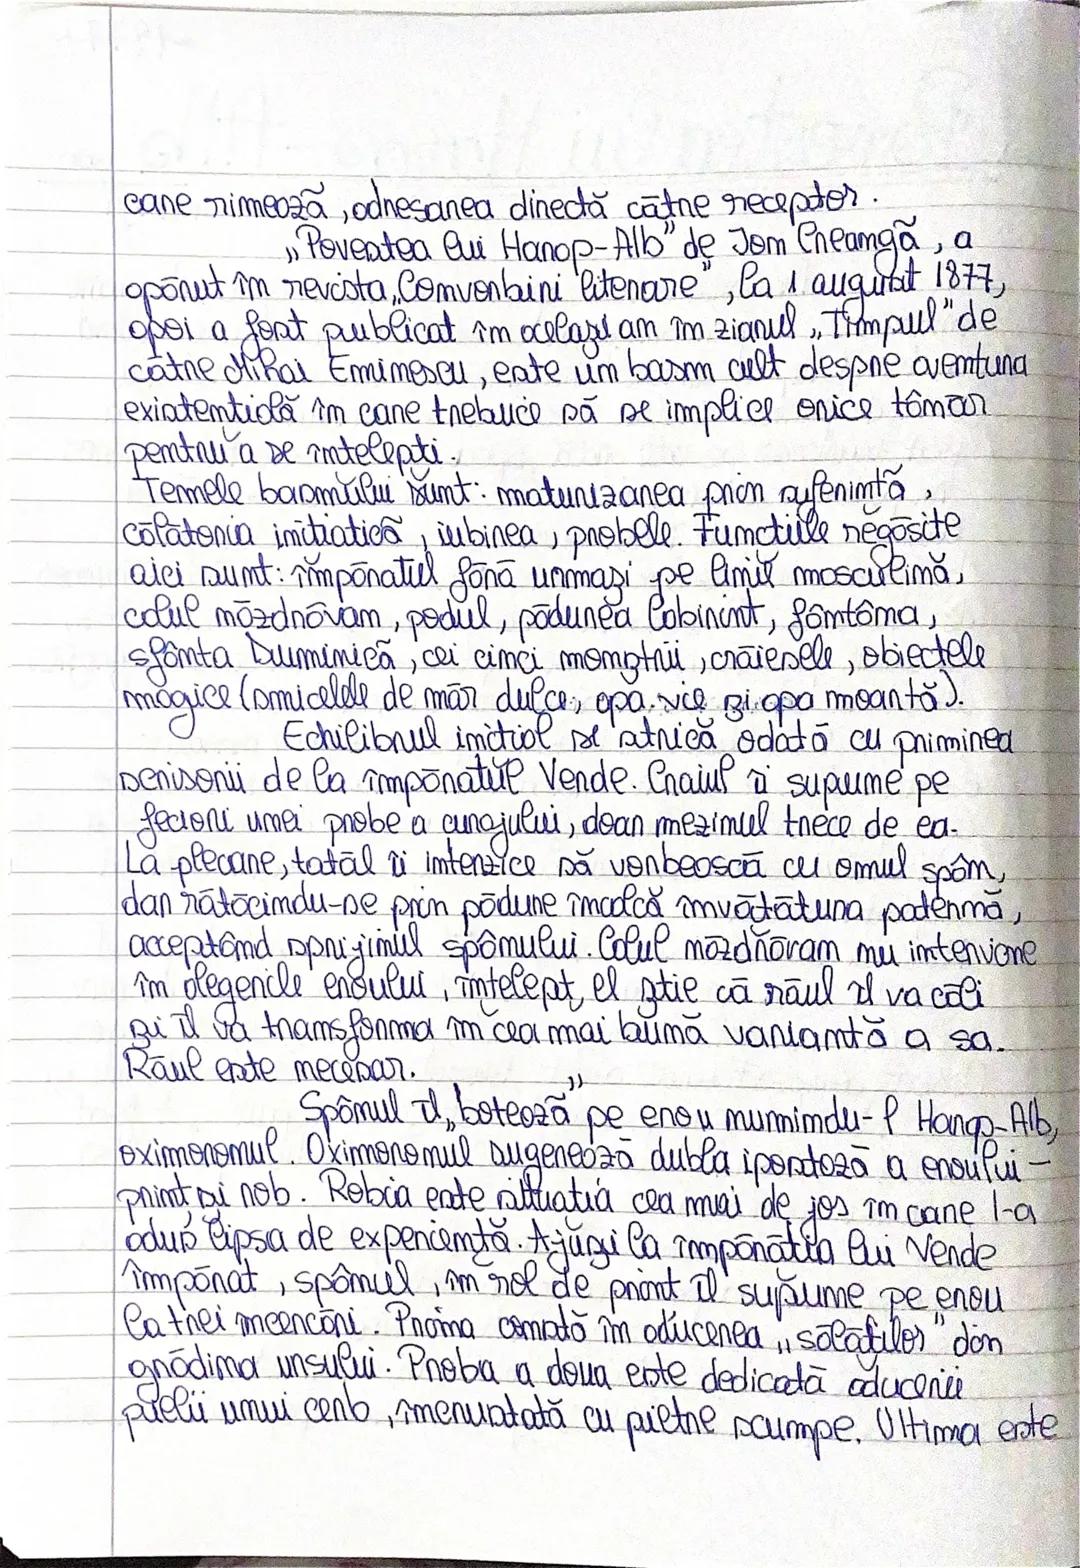 care rimează, adresarea directă către receptor.
„Povestea lui Harap-Alb" de Ion Creangă, a
apărut în revista „Convorbiri literare", la 1 august 1877,
apoi a fost publicat în același an în ziarul „Timpul" de
către Mihai Eminescu, este un basm cult despre aventura
existențială în care trebuie să se implice orice tânăr
pentru a se înțelepți.
Temele basmului sunt: maturizarea prin suferință,
călătoria inițiatică, iubirea, probele. Funcțiile regăsite
aici sunt: împăratul fără urmași pe linie masculină,
calul năzdrăvan, podul, pădurea labirint, fântâna,
sfânta Duminică, cei cinci monștrii, crăiesele, obiectele
magice (smicelele de măr dulce, apa vie și apa moartă).
Echilibrul inițial se strică odată cu primirea
scrisorii de la împăratul Verde. Craiul îi supune pe
feciori unei probe a curajului, doar mezinul trece de ea.
La plecare, tatăl îi interzice să vorbească cu omul spân,
dar rătăcindu-se prin pădure încalcă învățătura paternă,
acceptând sprijinul spânului. Calul năzdrăvan nu intervine
în alegerile eroului, înțelept, el știe că răul îl va căli
și îl va transforma în cea mai bună variantă a sa.
Răul este necesar.
Spânul îl „botează" pe erou numindu-l Harap-Alb,
oximoronul. Oximoronul sugerează dubla ipostază a eroului –
prinț și rob. Robia este situația cea mai de jos în care l-a
adus lipsa de experiență. Ajunși la împărăția lui Verde
împărat, spânul, în rol de prinț îl supune pe erou
la trei încercări. Prima constă în aducerea „sălăților" din
grădina ursului. Proba a doua este dedicată aducerii
pielii unui cerb, inerustată cu pietre scumpe. Ultima este